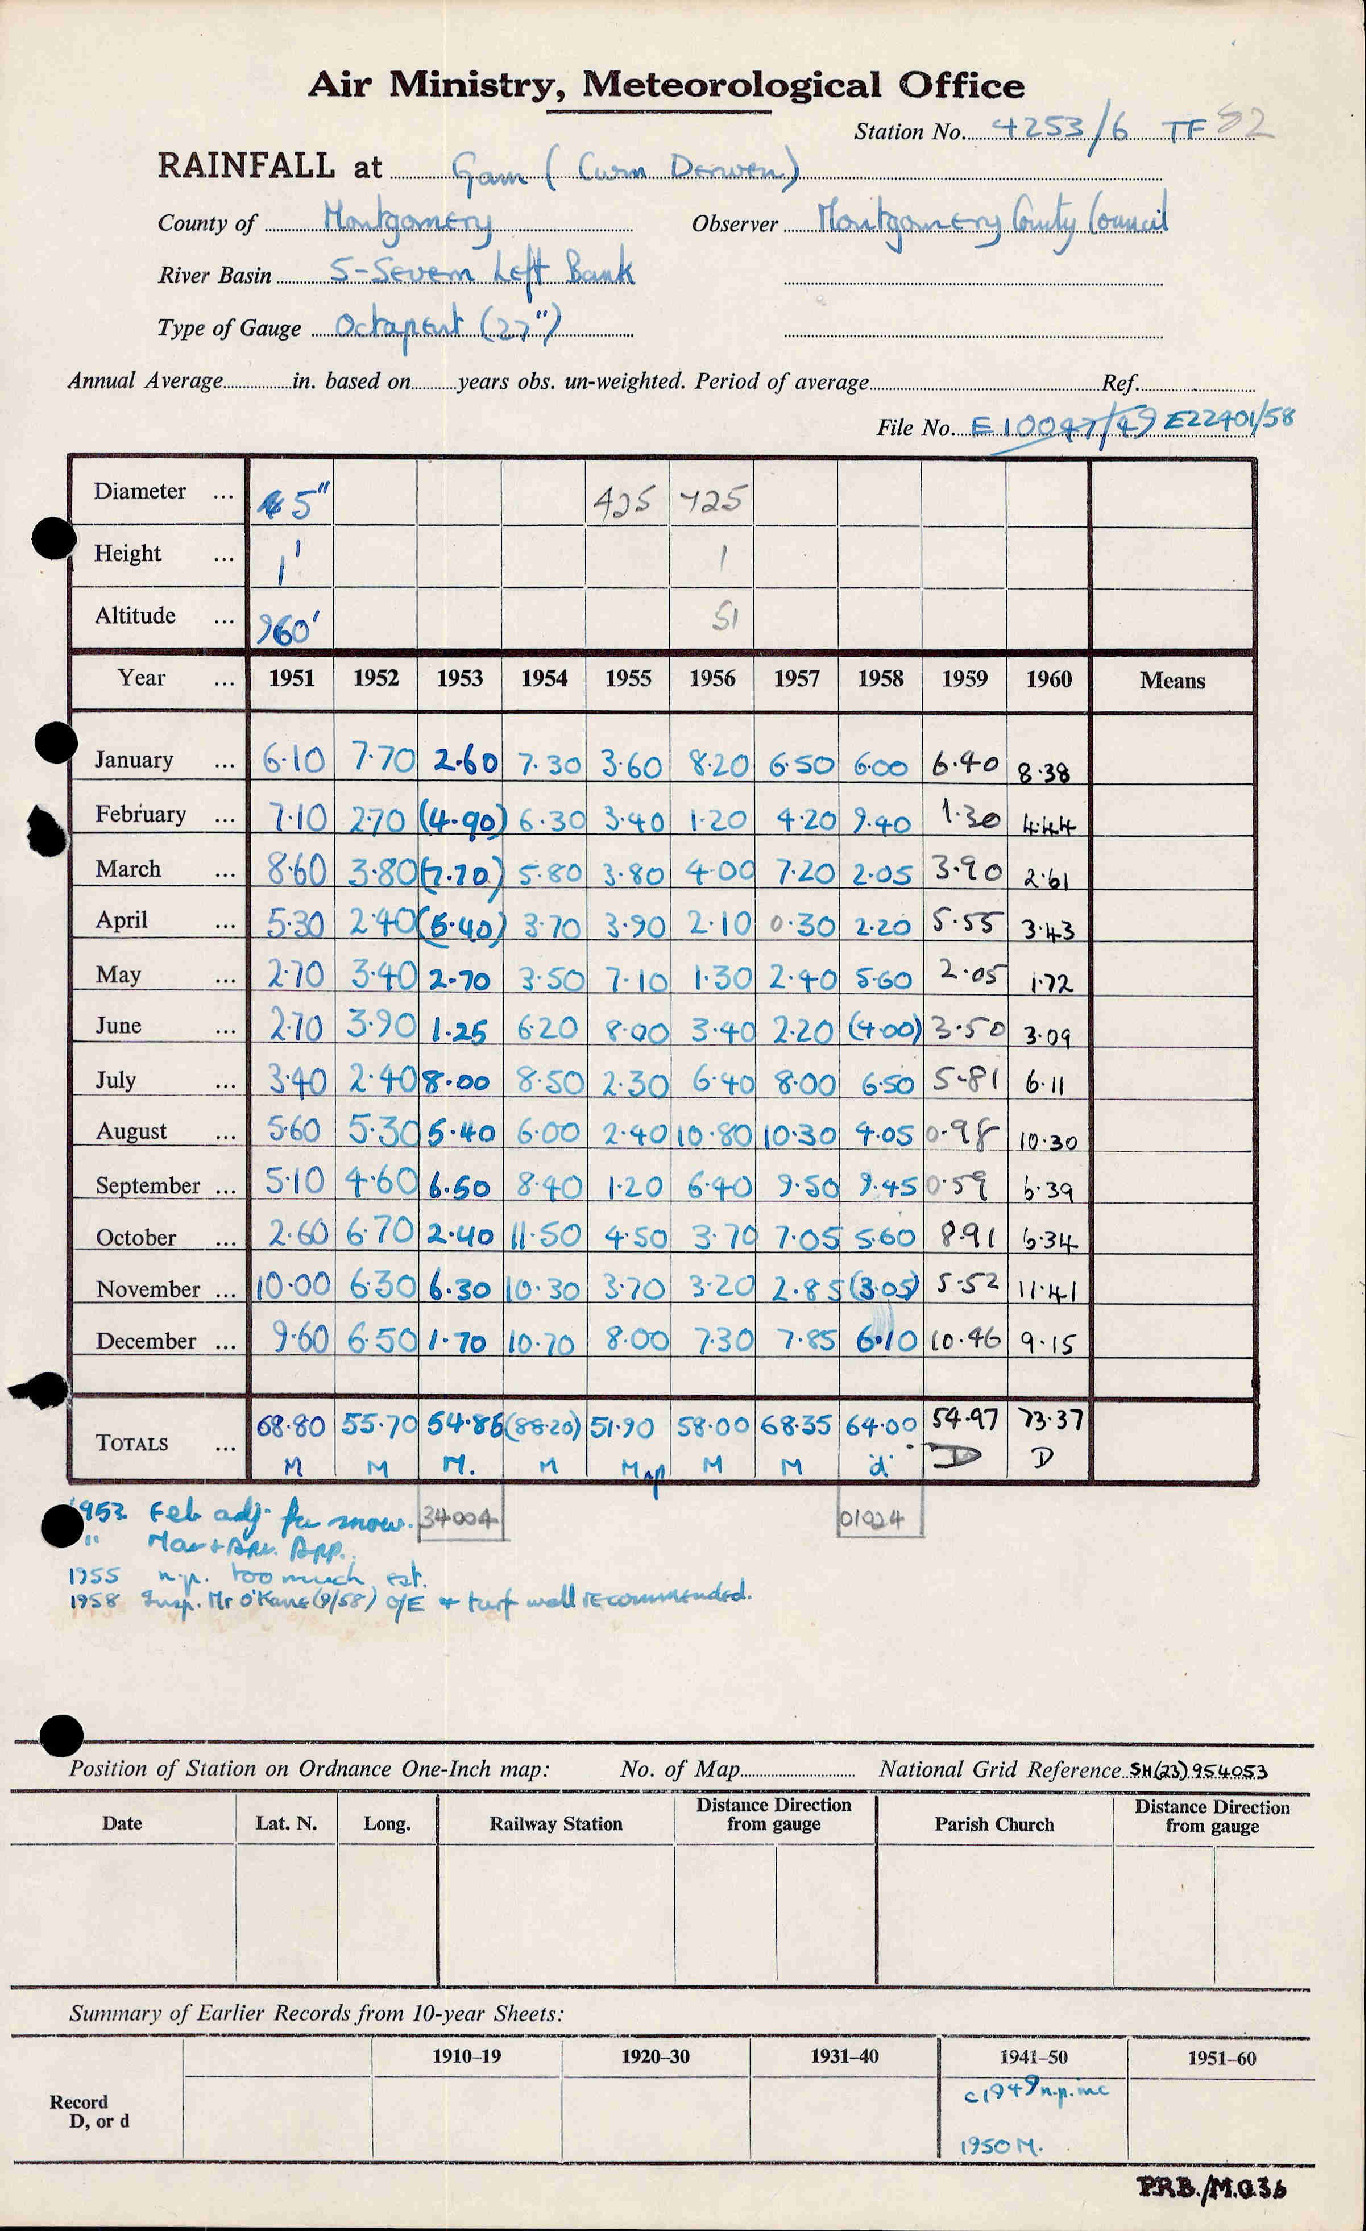 Air Ministry, Meteorological Office
Station No. 4253/6 TF 82
RAINFALL at Gam (Cwm Derwen)
County of Montgomery Observer Montgomery County Council
River Basin 5-Severn Left Bank
Type of Gauge Octapent (27")
Annual Average in. based on years obs. un-weighted. Period of average Ref.
File No. E10047/49 E22401/58
Diameter ... 5" 425 425
Height ... 1' 1
Altitude ... 960' 51
Year ... 1951 1952 1953 1954 1955 1956 1957 1958 1959 1960 Means
January ... 6.10 7.70 2.60 7.30 3.60 8.20 6.50 6.00 6.40 8.38
February ... 7.10 2.70 (4.90) 6.30 3.40 1.20 4.20 9.40 1.30 4.44
March ... 8.60 3.80 (7.70) 5.80 3.80 4.00 7.20 2.05 3.90 2.61
April ... 5.30 2.40 (5.40) 3.70 3.90 2.10 0.30 2.20 5.55 3.43
May ... 2.70 3.40 2.70 3.50 7.10 1.30 2.40 5.60 2.05 1.72
June ... 2.70 3.90 1.25 6.20 8.00 3.40 2.20 (4.00) 3.50 3.09
July ... 3.40 2.40 8.00 8.50 2.30 6.40 8.00 6.50 5.81 6.11
August ... 5.60 5.30 5.40 6.00 2.40 10.80 10.30 4.05 0.98 10.30
September ... 5.10 4.60 6.50 8.40 1.20 6.40 9.50 9.45 0.59 6.39
October ... 2.60 6.70 2.40 11.50 4.50 3.70 7.05 5.60 8.91 6.34
November ... 10.00 6.30 6.30 10.30 3.70 3.20 2.85 (3.05) 5.52 11.41
December ... 9.60 6.50 1.70 10.70 8.00 7.30 7.85 6.10 10.46 9.15
TOTALS ... 68.80 55.70 54.85 (88.20) 51.90 58.00 68.35 64.00 54.97 73.37
M M M. M M np M M d D D
1953 Feb adj. for snow. 34004 01024
" Mar + Apr. App.
1955 n.p. too much est.
1958 Insp. Mr O'Kane (9/58) O/E + turf wall recommended.
Position of Station on Ordnance One-Inch map: No. of Map National Grid Reference SH(23)954053
Date Lat. N. Long. Railway Station Distance Direction from gauge Parish Church Distance Direction from gauge
Summary of Earlier Records from 10-year Sheets:
1910–19 1920–30 1931–40 1941–50 1951–60
Record
D, or d
c1949 n.p. inc
1950 M.
P.R.B./M.O.36